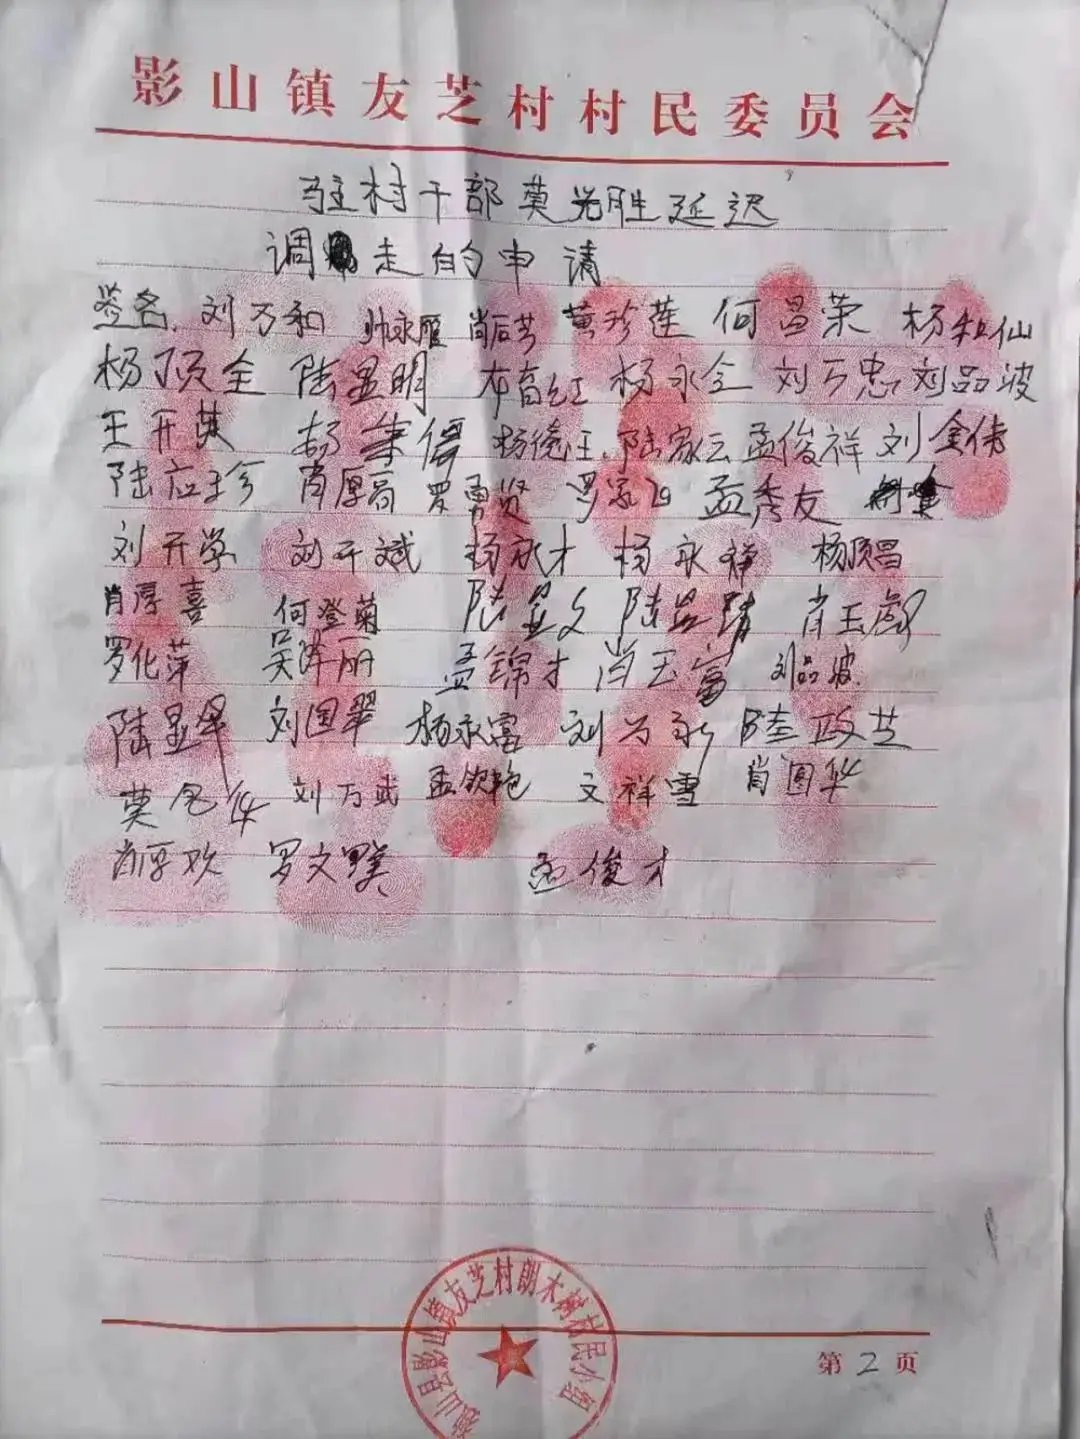 影山镇友芝村村民委员会
驻村干部莫光胜延迟
调走的申请
签名 刘万和 帅永雁 肖后芬 黄珍莲 何昌荣 杨 仙
杨顶全 陆显明 布育红 杨永全 刘万忠 刘品波
王开英 杨 儒 杨德江 陆家云 孟俊祥 刘金伟
陆应珍 肖厚高 罗勇贤 罗 孟秀友
刘开学 刘开斌 杨永才 杨永祥 杨顶昌
肖厚喜 何登菊 陆显文 陆 肖玉
罗化萍 吴泽丽 孟锦才 肖玉富 刘品波
陆显军 刘国翠 杨永富 刘万永 陆政芝
莫 华 刘万武 孟钦艳 文祥雪 肖国华
肖厚欢 罗文 孟俊才
独山县影山镇友芝村朗木树村民小组
第2页